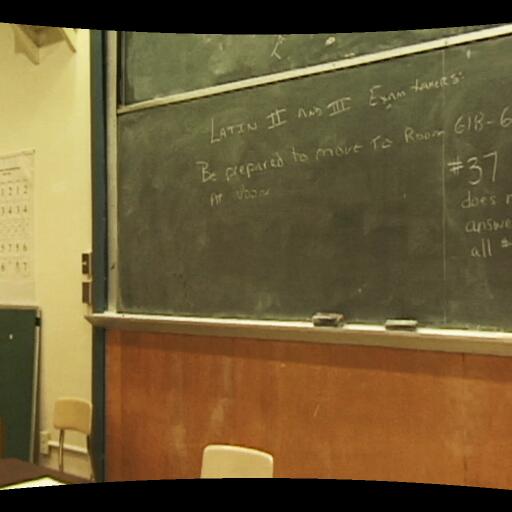 LATIN II AND III Exam takers:
Be prepared to move To Room 61B-6
At noon
#37
does
answe
all #